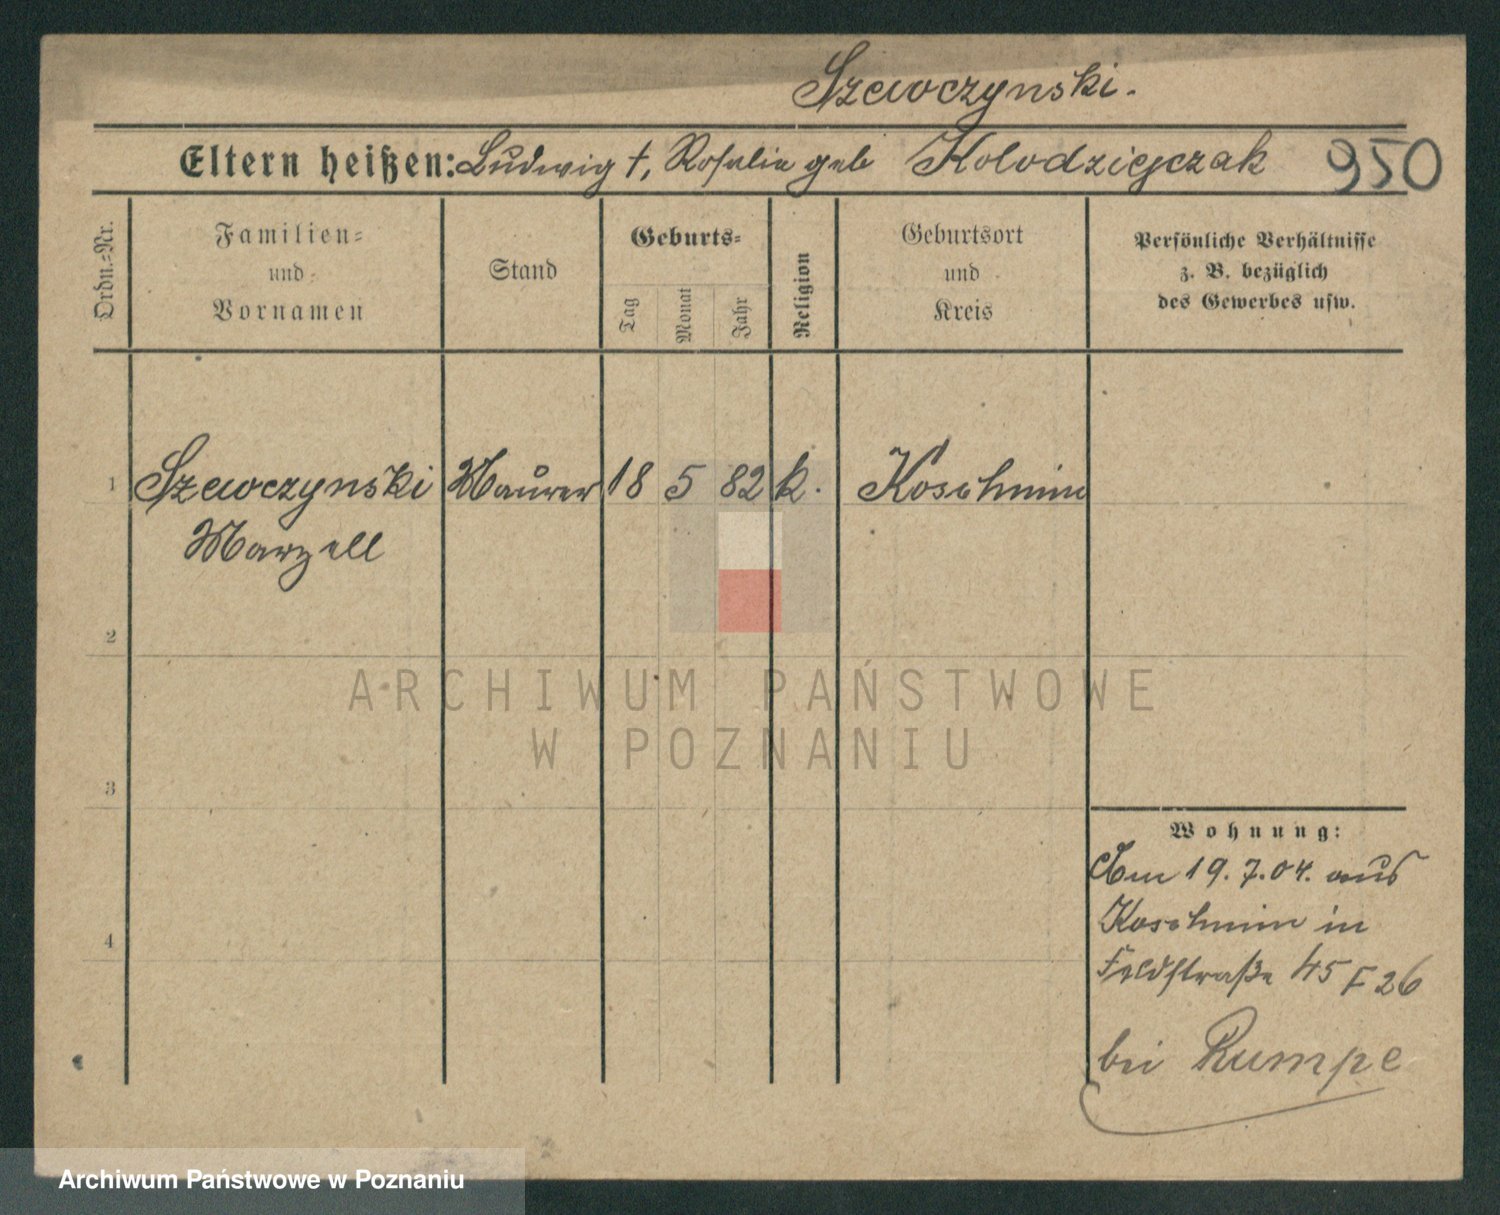 Szewczynski.
Eltern heißen: Ludwig †, Rosalie geb Kolodziejczak 950
Ordn.-Nr.
Familien-
und
Vornamen
Stand
Geburts-
Tag
Monat
Jahr
Religion
Geburtsort
und
Kreis
Persönliche Verhältnisse
z. B. bezüglich
des Gewerbes usw.
1 Szewczynski Maurer 18 5 82 k. Koschmin
Marzell
2
ARCHIWUM PAŃSTWOWE
W POZNANIU
3
Wohnung:
Am 19.7.04. aus
Koschmin in
4
Feldstraße 45 F 26
bei Rumpe
Archiwum Państwowe w Poznaniu